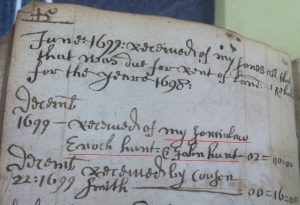 45
June: 1699: Received of my sones all the
that was due for Rent of Land
for the yeare 1698:
Decemb
1699 — Received of my sonninlaw
Enock hunt: & John hunt — 02 = 00 = 00
Decemb Received by Couson
22: 1699 Smith — 00 = 16 = 00